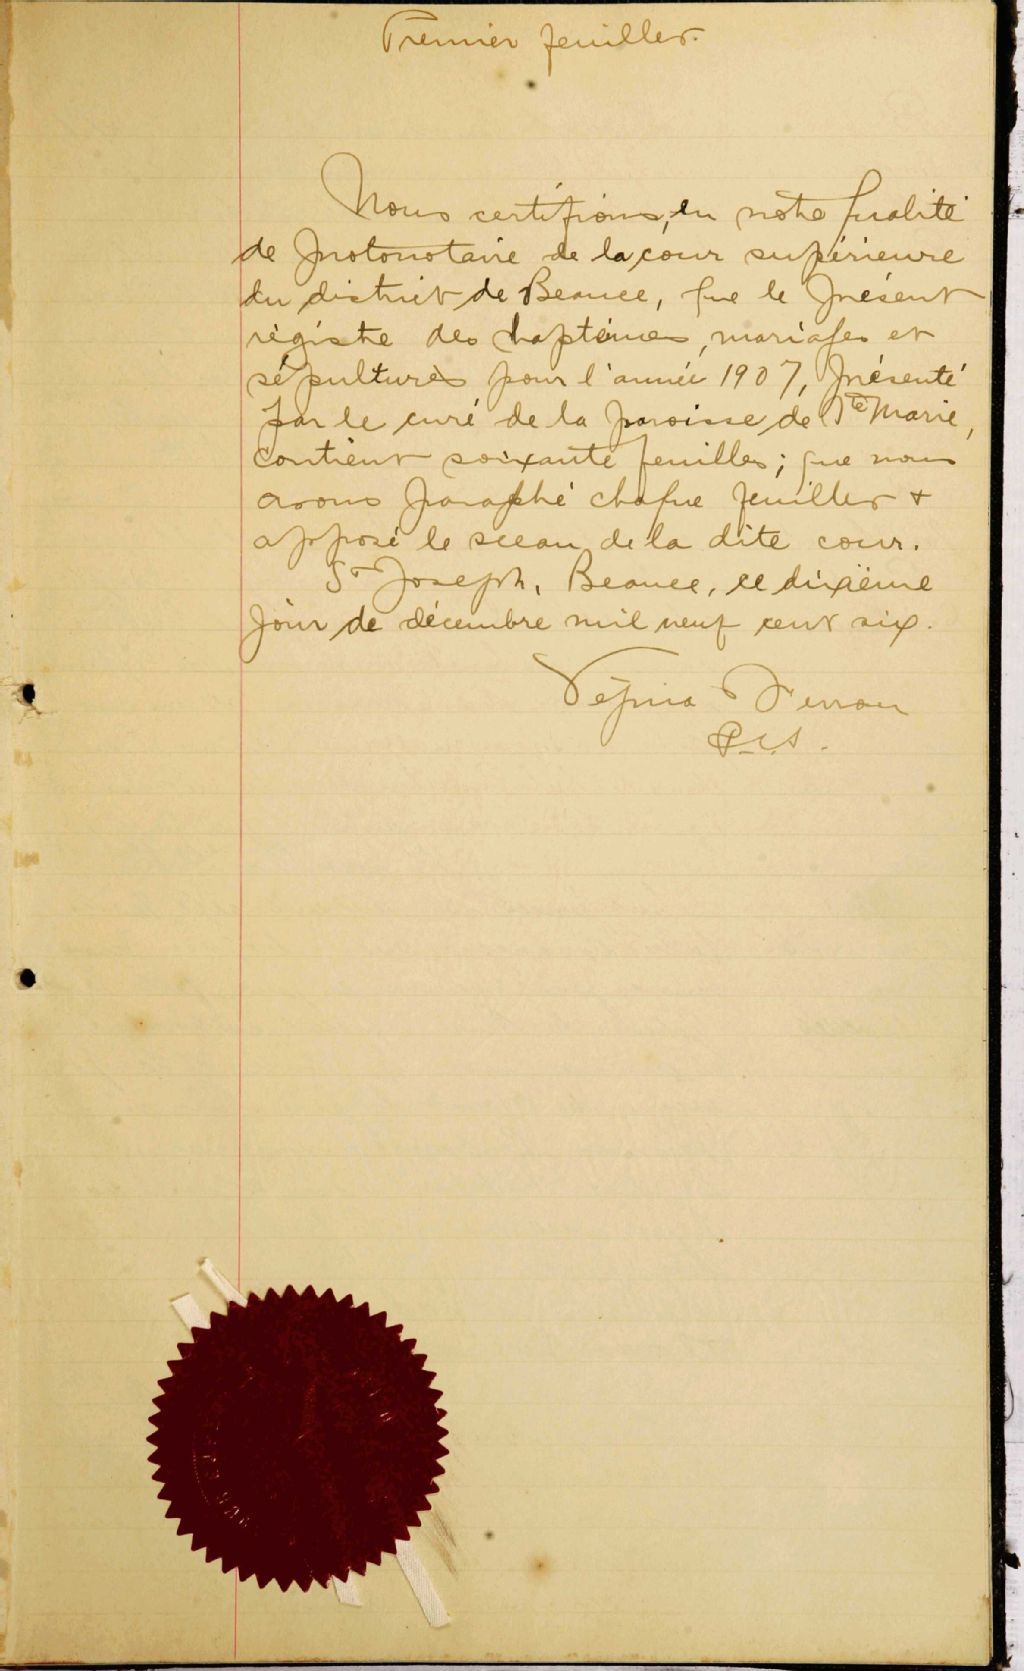 Premier feuillet.
Nous certifions, en notre qualité
de protonotaire de la cour supérieure
du district de Beauce, que le présent
régistre des baptêmes, mariages et
sépultures pour l'année 1907, présenté
par le curé de la paroisse de Ste Marie,
contient soixante feuilles; que nous
avons paraphé chaque feuillet &
apposé le sceau de la dite cour.
St Joseph, Beauce, ce dixième
jour de décembre mil neuf cent six.
Vézina
P.C.S.